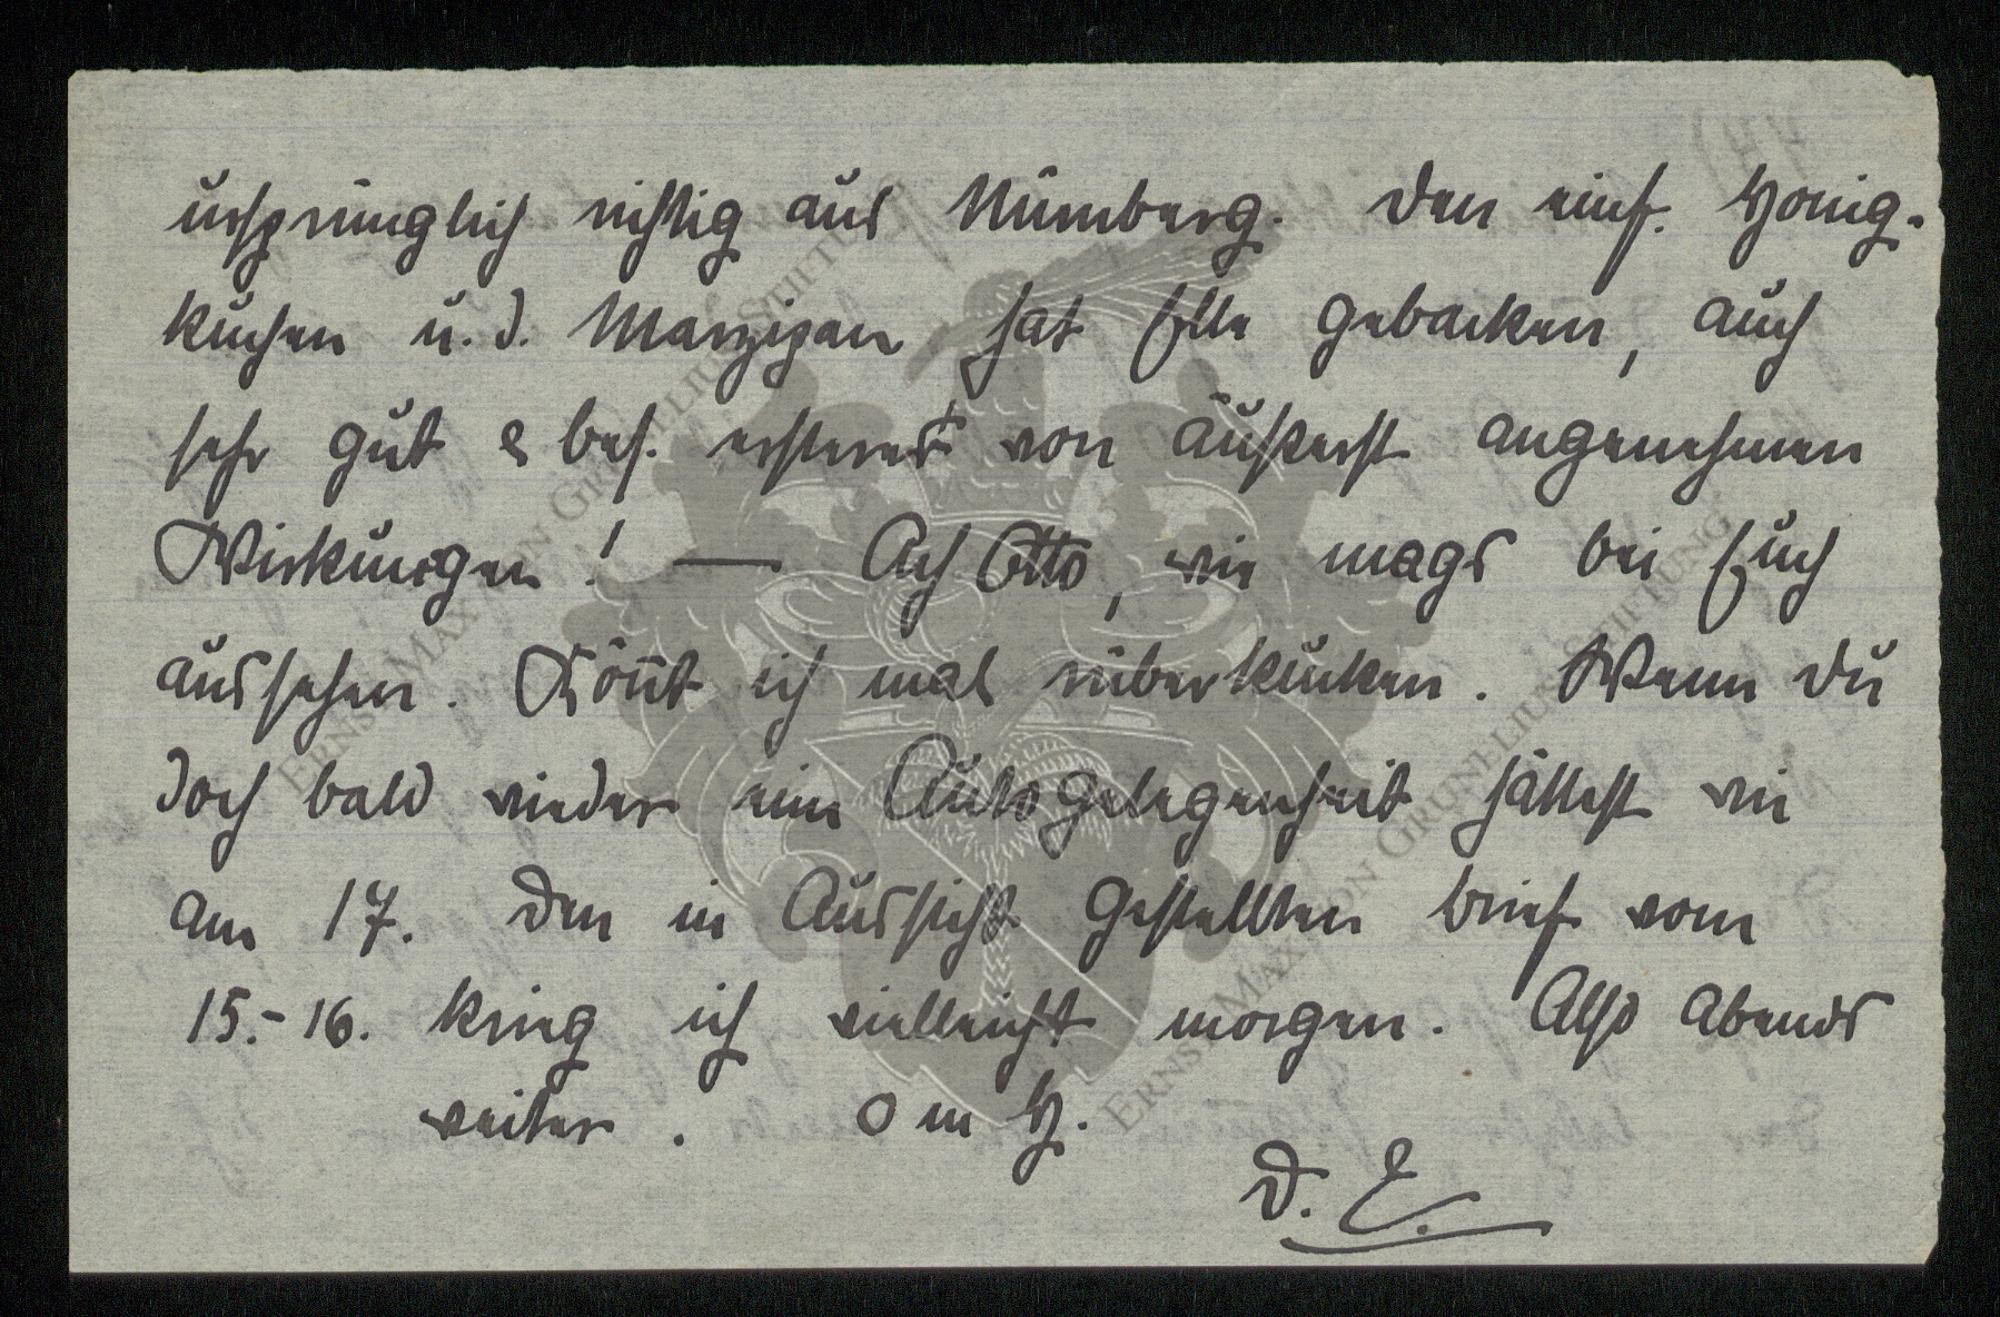 ursprünglich richtig aus Nürnberg. Den einf. Honig-
kuchen u. d. Marzipan hat Elle gebacken, auch
sehr gut & bes. ersterer von äußerst angenehmen
Wirkungen! — Ach Otto, wie mags bei Euch
aussehen. Könnt ich mal rüberkucken. Wenn Du
doch bald wieder eine Autogelegenheit hättest wie
am 17. Den in Aussicht gestellten Brief vom
15.-16. krieg ich vielleicht morgen. Also Abends
weiter. O m H.
D. E.
ERNST MAX VON GRUNELIUS STIFTUNG
ERNST MAX VON GRUNELIUS STIFTUNG